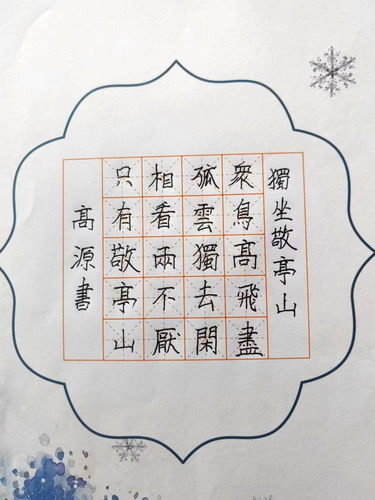 獨坐敬亭山
衆鳥髙飛盡
孤雲獨去閑
相看兩不厭
只有敬亭山
髙源書